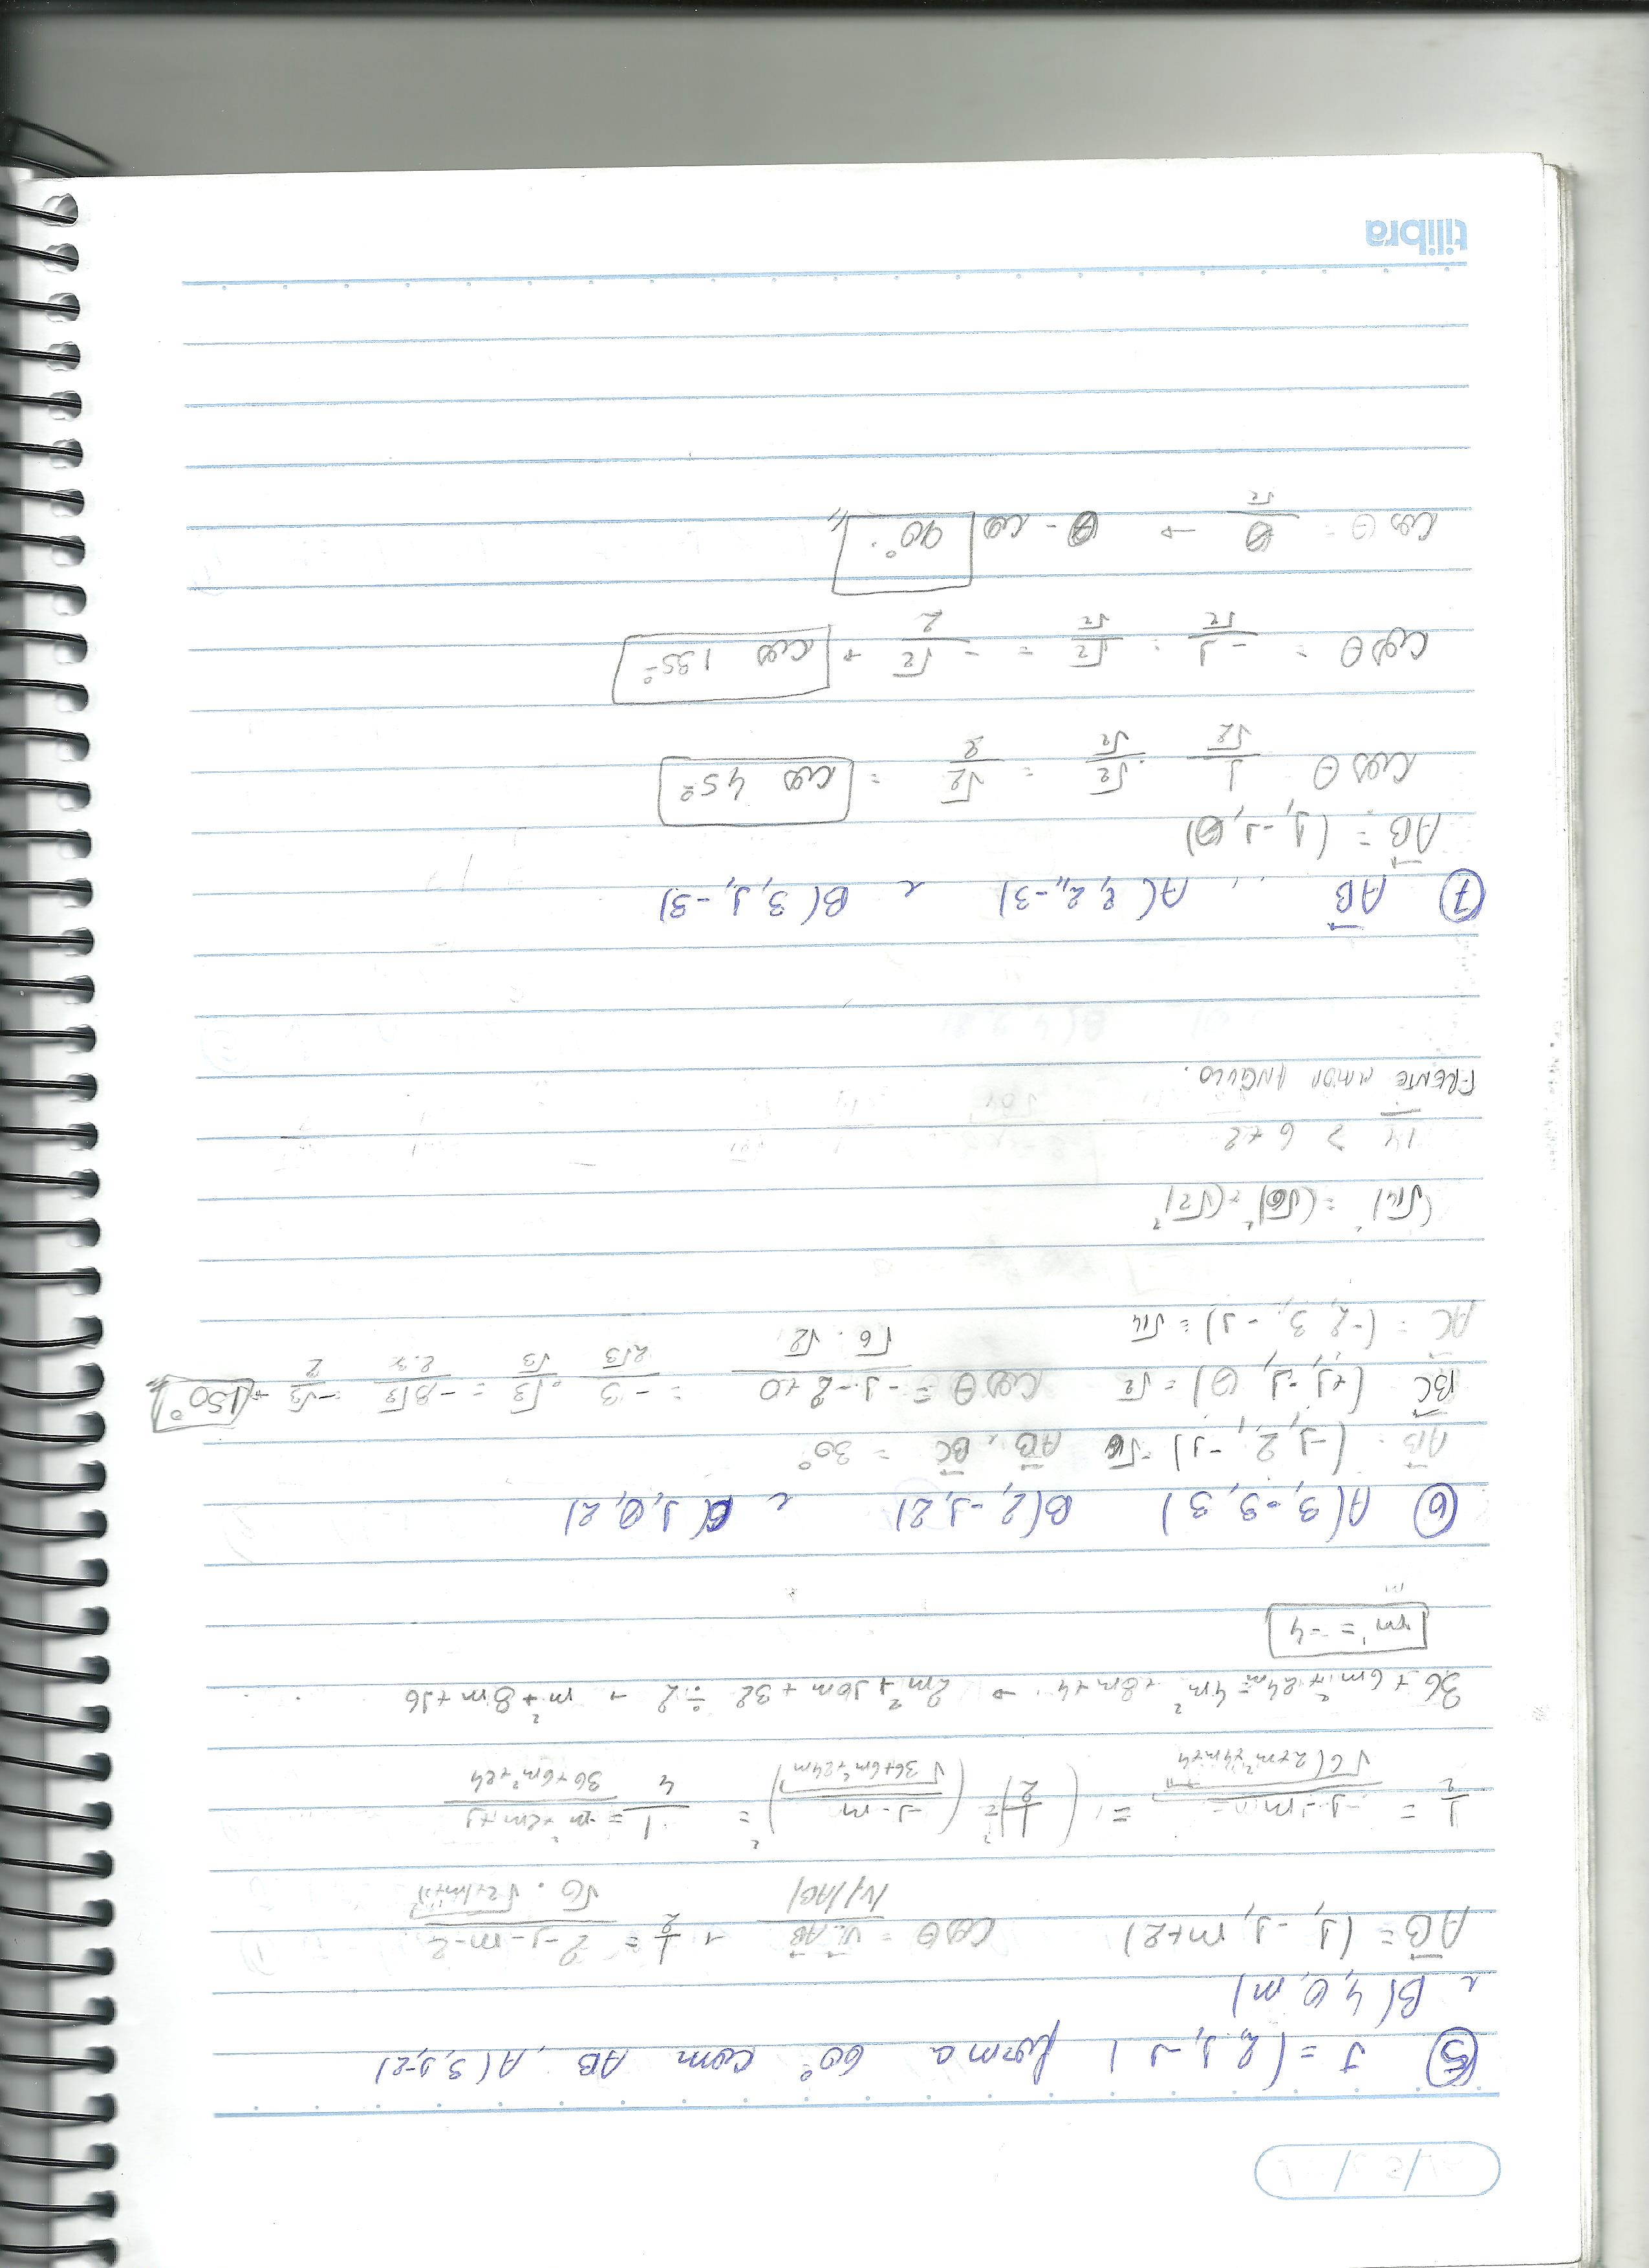 5 V = (2, 1, -1) forma 60° com AB, A(3,1,-2)
e B(4, 0, m)
AB = (1, -1, m+2) cos θ = V.AB/|V||AB| → 1/2 = 2-1-m-2/√6 . √2+(m+2)²
1/2 = -1-m/√6(2+m²+4m+4 = (1/2)² = (-1-m/√36+6m²+24m)² = 1/4 = m²+2m+1/36+6m²+24
36 + 6m² + 24m = 4m² + 8m + 4 → 2m² + 16m + 32 ÷ 2 → m² + 8m + 16
m' = -4
6 A(3, -3, 3) B(2, -1, 2) e C(1, 0, 2)
AB = (-1, 2, -1) = √6 AB . BC = 30°
BC (+1, -1, 0) = √2 cos θ = -1-2+0/√6 . √2 = -3/2√3 . √3/√3 = -3√3/2.3 = -√3/2 → 150°
AC = (-2, 3, -1) = √14
(√14)² = (√6)² + (√2)²
14 > 6 + 2
FRENTE MAIOR ANGULO.
7 AB A(2, 2, -3) e B(3, 1, -3)
AB = (1, -1, 0)
cos θ 1/√2 . √2/√2 = √2/2 = cos 45°
cos θ = -1/√2 . √2/√2 = -√2/2 → cos 135°
cos θ = 0/√2 → 0 - cos 90°
tilibra